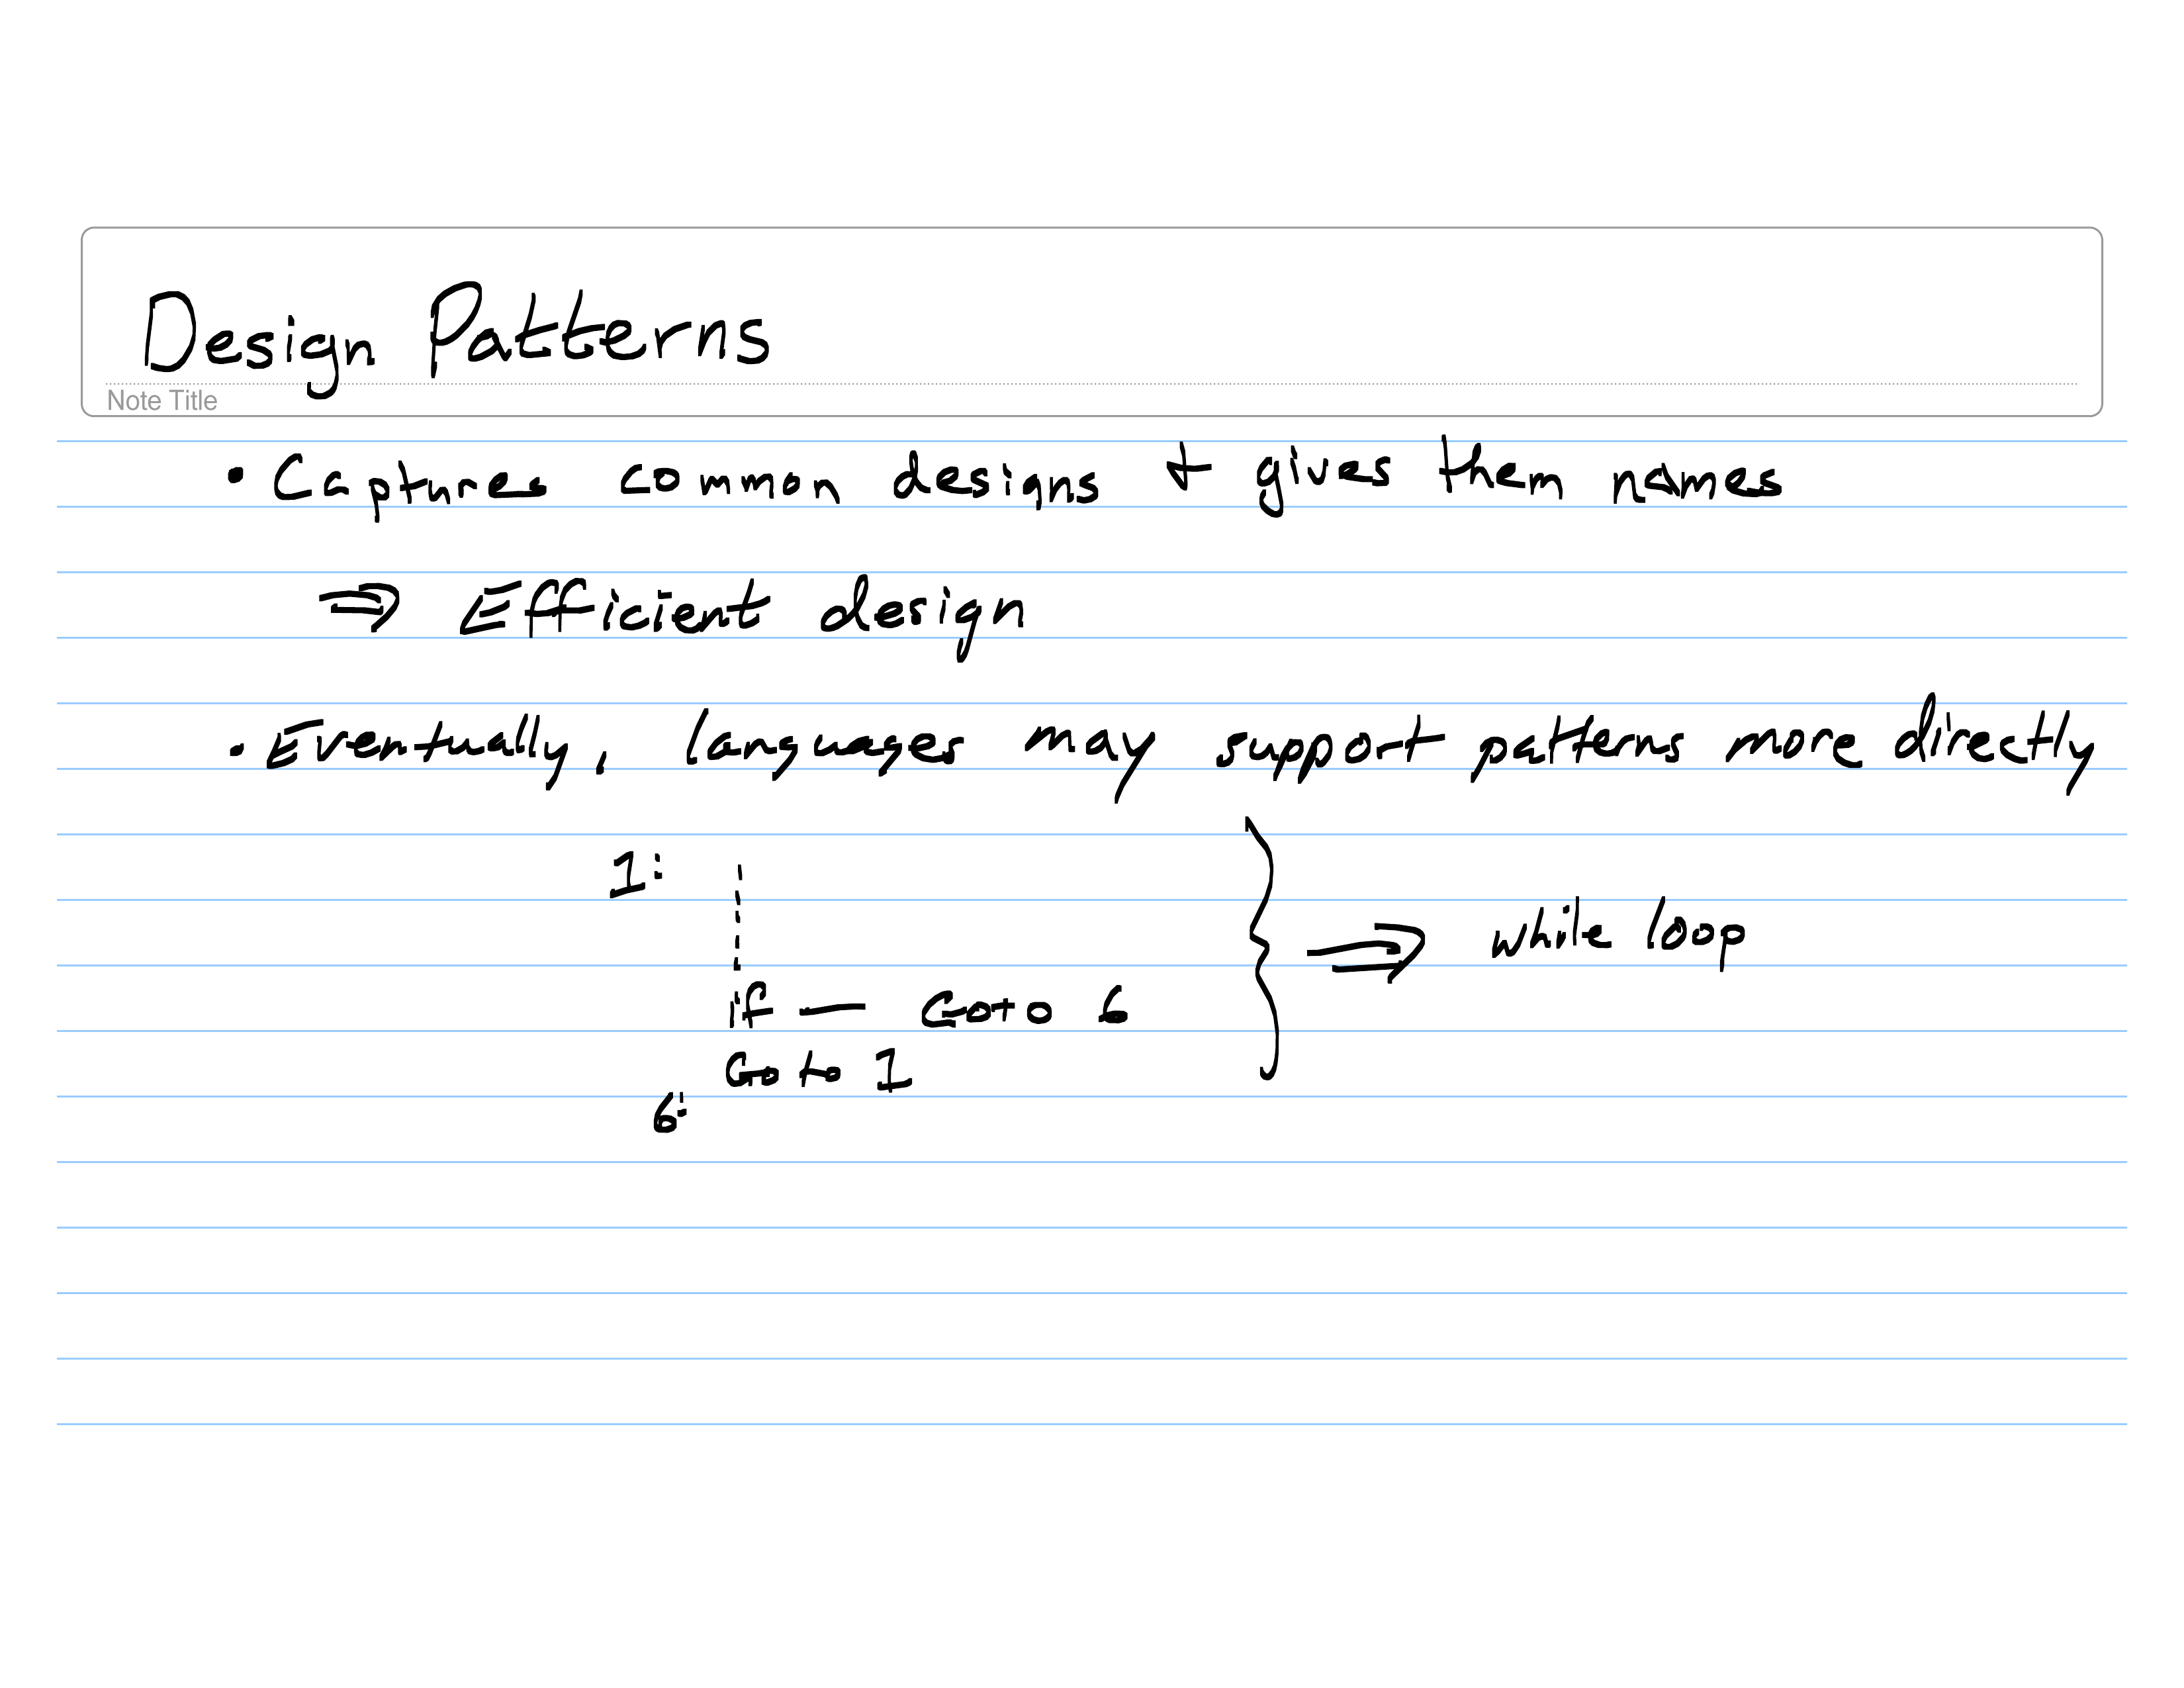 Design Patterns
Note Title
• Captures common designs + gives them names
⇒ Efficient design
• Eventually, languages may support patterns more directly
1:
if — Goto 6
⇒ while loop
Goto 1
6: